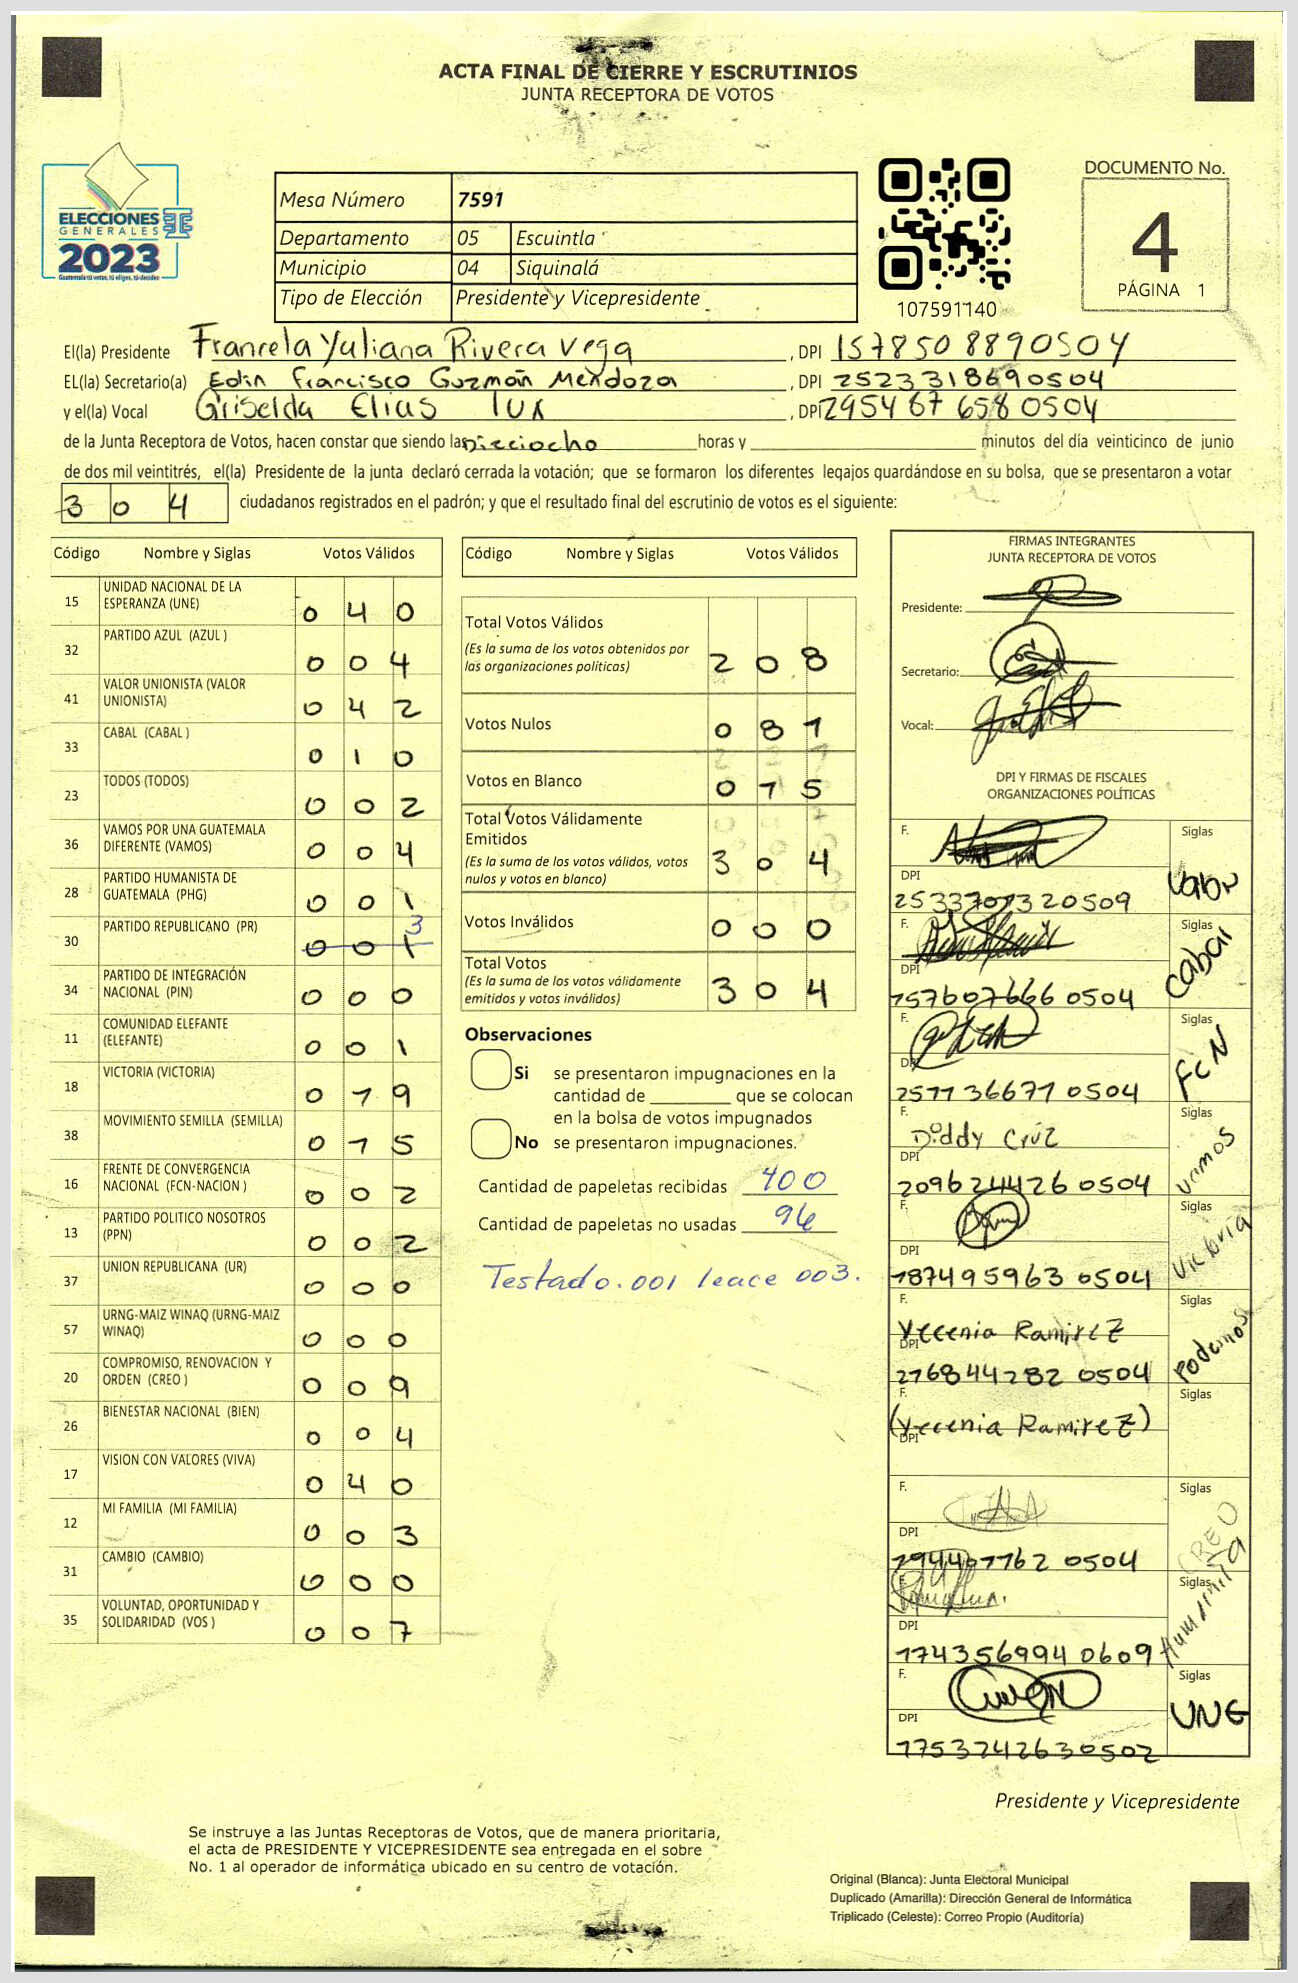 ACTA FINAL DE CIERRE Y ESCRUTINIOS
JUNTA RECEPTORA DE VOTOS
ELECCIONES
GENERALES
2023
Guatemala tú votas, tú eliges, tú decides
Mesa Número 7591
Departamento 05 Escuintla
Municipio 04 Siquinalá
Tipo de Elección Presidente y Vicepresidente
107591140
DOCUMENTO No.
4
PÁGINA 1
El(la) Presidente Francela Yuliana Rivera Vega, DPI 1578508890504
EL(la) Secretario(a) Edin Francisco Guzmán Mendoza, DPI 2523318690504
y el(la) Vocal Griselda Elias Tux, DPI 2954676580504
de la Junta Receptora de Votos, hacen constar que siendo las Dieciocho horas y ____ minutos del día veinticinco de junio
de dos mil veintitrés, el(la) Presidente de la junta declaró cerrada la votación; que se formaron los diferentes legajos guardándose en su bolsa, que se presentaron a votar
3 0 4 ciudadanos registrados en el padrón; y que el resultado final del escrutinio de votos es el siguiente:
Código Nombre y Siglas Votos Válidos
15 UNIDAD NACIONAL DE LA ESPERANZA (UNE) 0 4 0
32 PARTIDO AZUL (AZUL ) 0 0 4
41 VALOR UNIONISTA (VALOR UNIONISTA) 0 4 2
33 CABAL (CABAL ) 0 1 0
23 TODOS (TODOS) 0 0 2
36 VAMOS POR UNA GUATEMALA DIFERENTE (VAMOS) 0 0 4
28 PARTIDO HUMANISTA DE GUATEMALA (PHG) 0 0 1
30 PARTIDO REPUBLICANO (PR) 0 0 1 3
34 PARTIDO DE INTEGRACIÓN NACIONAL (PIN) 0 0 0
11 COMUNIDAD ELEFANTE (ELEFANTE) 0 0 1
18 VICTORIA (VICTORIA) 0 1 9
38 MOVIMIENTO SEMILLA (SEMILLA) 0 1 5
16 FRENTE DE CONVERGENCIA NACIONAL (FCN-NACION ) 0 0 2
13 PARTIDO POLITICO NOSOTROS (PPN) 0 0 2
37 UNION REPUBLICANA (UR) 0 0 0
57 URNG-MAIZ WINAQ (URNG-MAIZ WINAQ) 0 0 0
20 COMPROMISO, RENOVACION Y ORDEN (CREO ) 0 0 9
26 BIENESTAR NACIONAL (BIEN) 0 0 4
17 VISION CON VALORES (VIVA) 0 4 0
12 MI FAMILIA (MI FAMILIA) 0 0 3
31 CAMBIO (CAMBIO) 0 0 0
35 VOLUNTAD, OPORTUNIDAD Y SOLIDARIDAD (VOS ) 0 0 7
Código Nombre y Siglas Votos Válidos
Total Votos Válidos
(Es la suma de los votos obtenidos por
las organizaciones políticas) 2 0 8
Votos Nulos 0 8 1
Votos en Blanco 0 1 5
Total Votos Válidamente
Emitidos
(Es la suma de los votos válidos, votos
nulos y votos en blanco) 3 0 4
Votos Inválidos 0 0 0
Total Votos
(Es la suma de los votos válidamente
emitidos y votos inválidos) 3 0 4
Observaciones
Si se presentaron impugnaciones en la
cantidad de ____ que se colocan
en la bolsa de votos impugnados
No se presentaron impugnaciones.
Cantidad de papeletas recibidas 400
Cantidad de papeletas no usadas 96
Testado. 001 leace 003.
FIRMAS INTEGRANTES
JUNTA RECEPTORA DE VOTOS
Presidente:
Secretario:
Vocal:
DPI Y FIRMAS DE FISCALES
ORGANIZACIONES POLÍTICAS
F. Siglas
DPI Valor
2533707320509
F. Siglas
DPI Cabal
1576076660504
F. Siglas
DPI FCN
2511366710504
F. Diddy Cruz
DPI Vamos
2096244260504
F. Siglas
DPI Victoria
1874959630504
F. Siglas
Yecenia Ramirez
DPI Podemos
2768442820504
F. Siglas
(Yecenia Ramirez)
DPI
F. Siglas
DPI CREO
1944077620504
F. Siglas
DPI Humanista
1743569940609
F. Siglas
DPI UNE
1753242630502
Presidente y Vicepresidente
Se instruye a las Juntas Receptoras de Votos, que de manera prioritaria,
el acta de PRESIDENTE Y VICEPRESIDENTE sea entregada en el sobre
No. 1 al operador de informática ubicado en su centro de votación.
Original (Blanca): Junta Electoral Municipal
Duplicado (Amarilla): Dirección General de Informática
Triplicado (Celeste): Correo Propio (Auditoría)